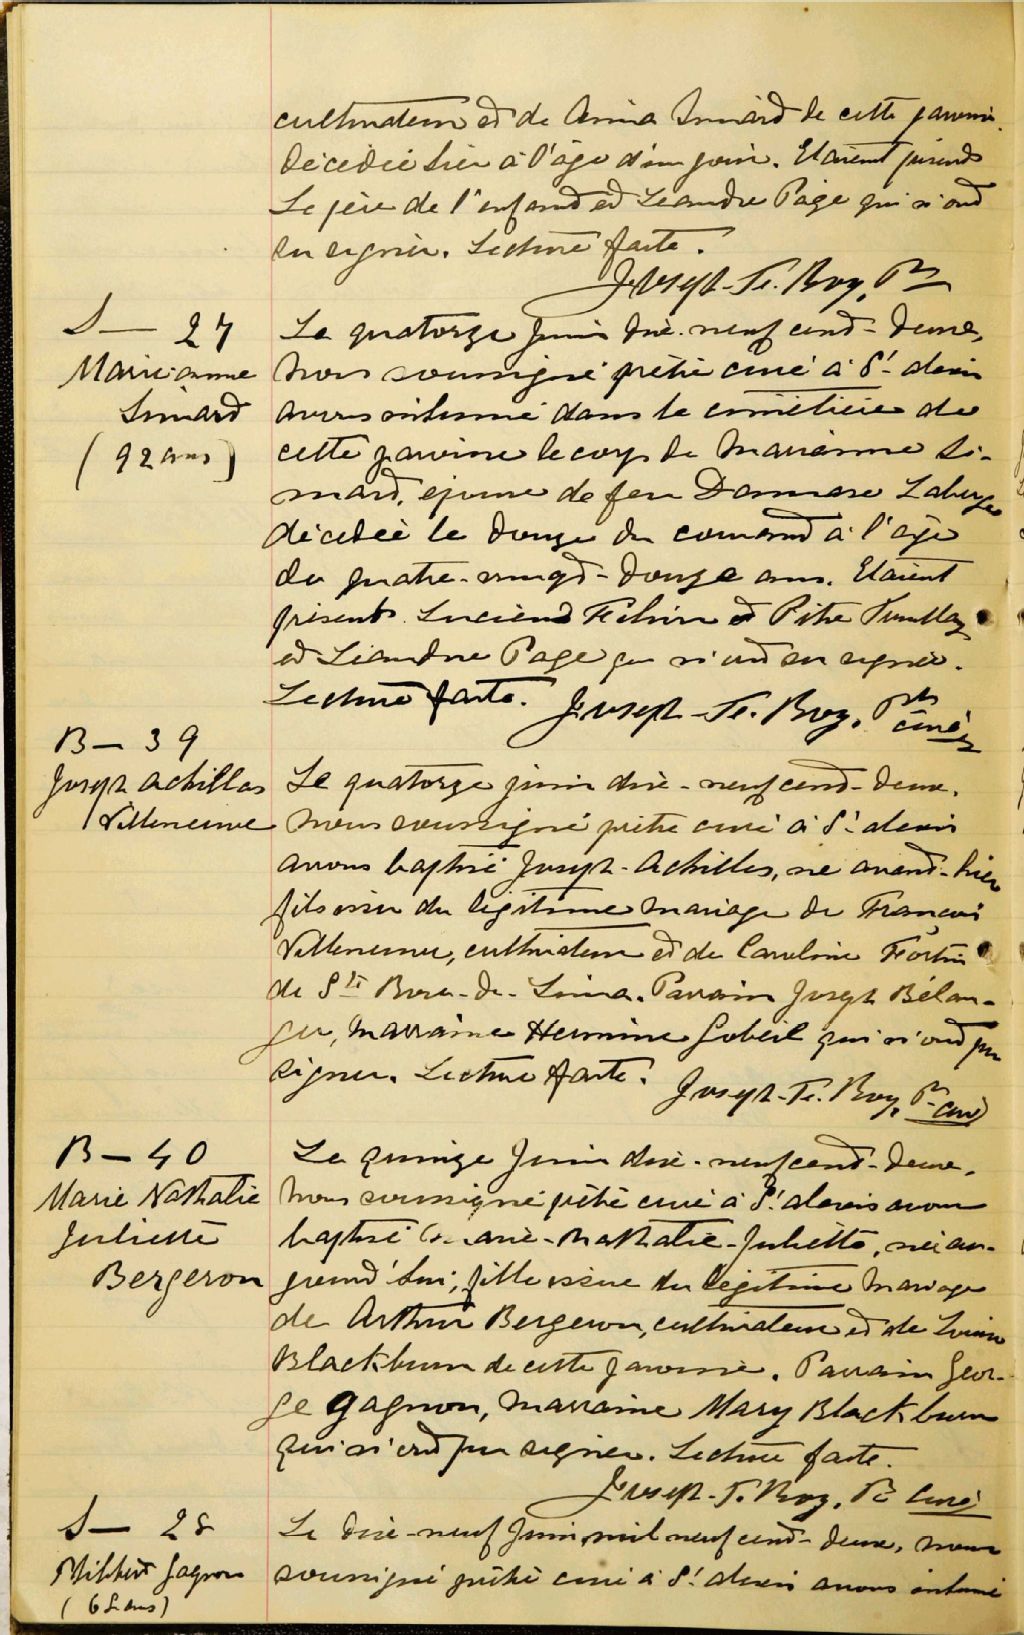 cultivateur et de Anna Simard de cette paroisse
décédée hier à l'âge d'un jour. Etaient présents
Le père de l'enfant et Léandre Page qui n'ont
su signer. Lecture faite.
Joseph-Te. Roy, Ptre
S — 27
Marie anne
Simard
(92 ans)
Le quatorze Juin dix-neuf cent-deux,
Nous soussigné prêtre curé à St-alexis
avons inhumé dans le cimetière de
cette paroisse le corps de Marianne Si-
mard, epouse de feu Damase Laberge
décédée le douze du courant à l'age
de quatre-vingt-douze ans. Etaient
présents Lucien et Pitre Tremblay
et Léandre Page qui n'ont su signer.
Lecture faite. Joseph-Te. Roy, Ptre curé
B — 39
Joseph Achillas
Villeneuve
Le quatorze juin dix-neuf cent-deux.
Nous soussigné prêtre curé à St-alexis
avons baptisé Joseph-Achillas, né avant-hier
fils issu du légitime mariage de François
Villeneuve, cultivateur et de Caroline Fortin
de Ste Rose-de-Lima. Parrain Joseph Bélan-
ger, marraine Hermine Gobeil qui n'ont pu
signer. Lecture faite. Joseph-Te. Roy, Ptre curé
B — 40
Marie Nathalie
Juliette
Bergeron
Le quinze Juin dix-neuf cent-deux.
Nous soussigné prêtre curé à St alexis avons
baptisé Marie-Nathalie-Juliette, née au-
jourd'hui, fille issue du légitime Mariage
de Arthur Bergeron, cultivateur et de
Blackburn de cette paroisse. Parrain Geor-
ge Gagnon, marraine Mary Blackburn
qui n'ont pu signer. Lecture faite.
Joseph-T. Roy, Ptre curé
S — 28
Gagnon
Le dix-neuf Juin mil neuf cent-deux, nous
soussigné prêtre curé à St alexis avons inhumé